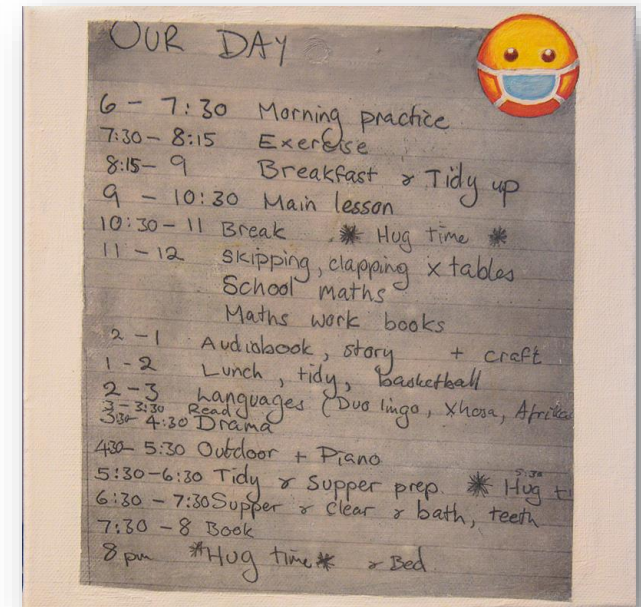 OUR DAY
6 - 7:30 Morning practice
7:30 - 8:15 Exercise
8:15 - 9 Breakfast & Tidy up
9 - 10:30 Main lesson
10:30 - 11 Break * Hug time *
11 - 12 skipping, clapping x tables
School maths
Maths work books
2 - 1 Audiobook, story + craft
1 - 2 Lunch, tidy, basketball
2 - 3 Languages (Duo lingo, Xhosa, Afrika
3 - 3:30 Read
3:30 - 4:30 Drama
430 - 5:30 Outdoor + Piano
5:30
5:30 - 6:30 Tidy & Supper prep * Hug t
6:30 - 7:30 Supper & clear & bath, teeth
7:30 - 8 Book
8 pm *Hug time* & Bed